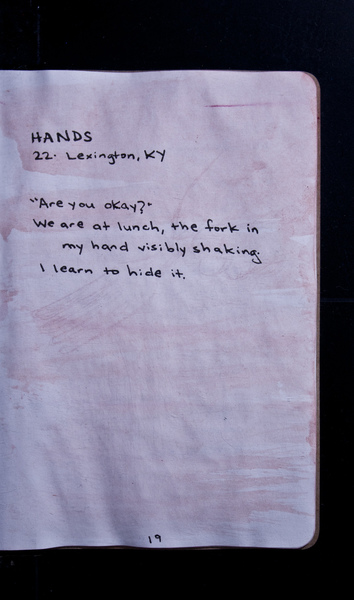 HANDS
22. Lexington, KY
"Are you okay?"
We are at lunch, the fork in
my hand visibly shaking.
I learn to hide it.
19